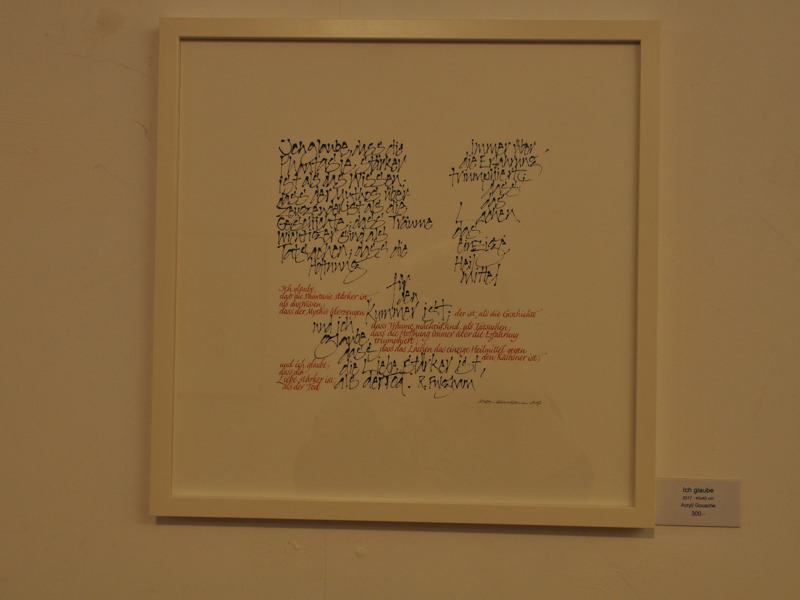 Ich glaube, dass die
Phantasie stärker
ist als das Wissen,
dass der Mythos über
ist als die
Geschichte, dass Träume
wichtiger sind als
Tatsachen, dass die
Hoffnung
immer über
die Erfahrung
triumphiert,
dass
das
Lachen
das
einzige
Heil-
Mittel
für
den
Kummer ist,
und ich
glaube,
dass
die Liebe stärker ist,
als der Tod. R. Fulghum
Ich glaube,
daß die Phantasie stärker ist,
als das Wissen,
dass der Mythos überzeugen
der ist, als die Geschichte
dass Träume mächtig sind, als Tatsachen,
dass die Hoffnung immer über die Erfahrung
triumphiert,
dass das Lachen das einzige Heilmittel gegen
den Kummer ist,
und ich glaube,
dass die
Liebe stärker ist
als der Tod
Ich glaube
2017 40x40 cm
Acryl/ Gouache
300.-